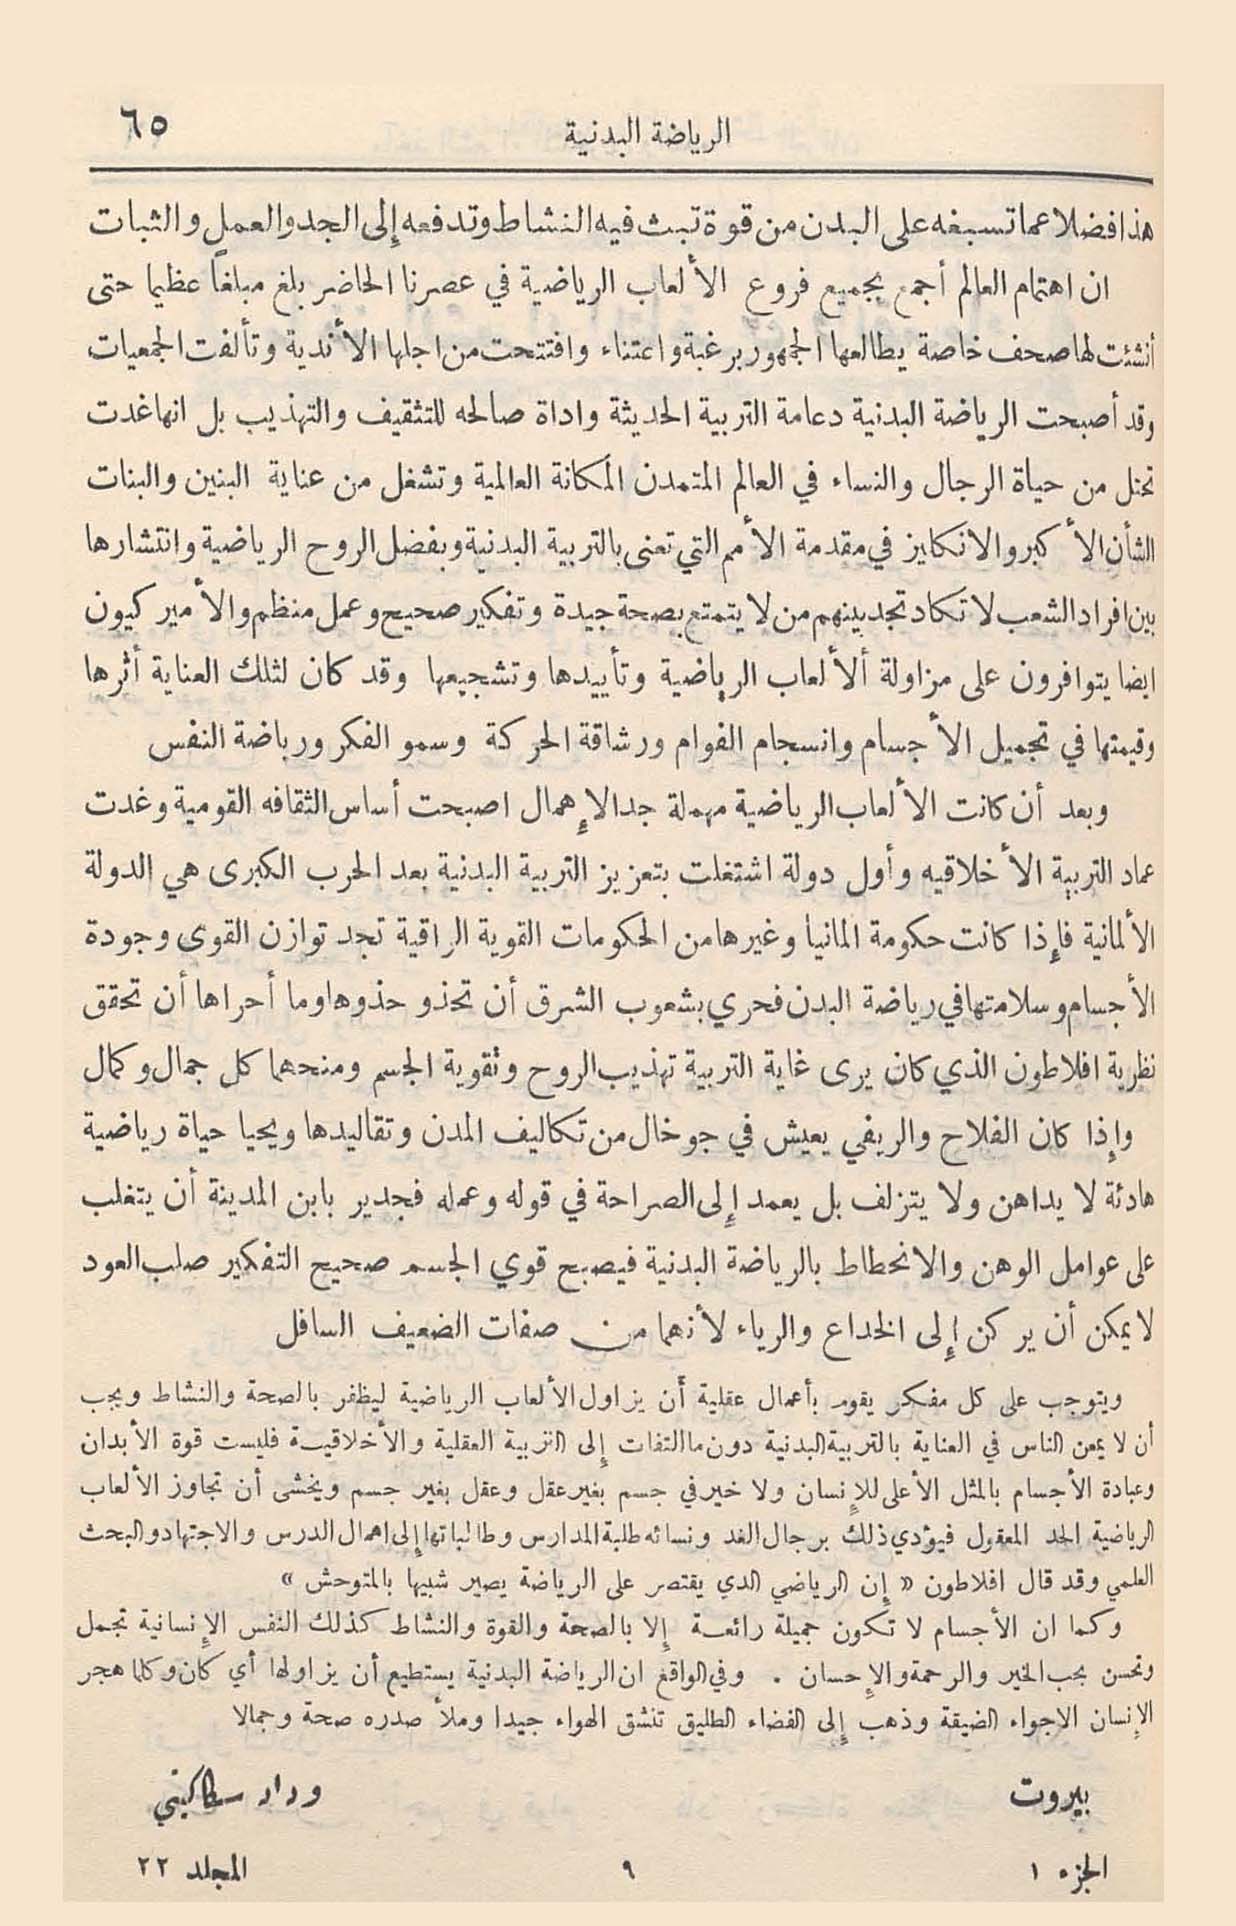 الرياضة البدنية
٦٥
هذا فضلا عما تسبغه على البدن من قوة تبث فيه النشاط وتدفعه إلى الجد والعمل والثبات
ان اهتمام العالم أجمع بجميع فروع الألعاب الرياضية في عصرنا الحاضر بلغ مبلغاً عظيما حتى
أنشئت لها صحف خاصة يطالعها الجمهور برغبة واعتناء وافتتحت من اجلها الأندية وتألفت الجمعيات
وقد أصبحت الرياضة البدنية دعامة التربية الحديثة واداة صالحه للتثقيف والتهذيب بل انها غدت
تحتل من حياة الرجال والنساء في العالم المتمدن المكانة العالمية وتشغل من عناية البنين والبنات
الشأن الأكبر والانكليز في مقدمة الأمم التي تعنى بالتربية البدنية وبفضل الروح الرياضية وانتشارها
بين افراد الشعب لا تكاد تجد بينهم من لا يتمتع بصحة جيدة وتفكير صحيح وعمل منظم والأميركيون
ايضا يتوافرون على مزاولة ألألعاب الرياضية وتأييدها وتشجيعها وقد كان لتلك العناية أثرها
وقيمتها في تجميل الأجسام وانسجام القوام ورشاقة الحركة وسمو الفكر ورياضة النفس
وبعد أن كانت الألعاب الرياضية مهملة جد الإهمال اصبحت أساس الثقافه القومية وغدت
عماد التربية الأخلاقيه وأول دولة اشتغلت بتعزيز التربية البدنية بعد الحرب الكبرى هي الدولة
الألمانية فإذا كانت حكومة المانيا وغيرها من الحكومات القوية الراقية تجد توازن القوى وجودة
الأجسام وسلامتها في رياضة البدن فحري بشعوب الشرق أن تحذو حذوها وما أحراها أن تحقق
نظرية افلاطون الذي كان يرى غاية التربية تهذيب الروح وتقوية الجسم ومنحهما كل جمال وكمال
وإذا كان الفلاح والريفي يعيش في جو خال من تكاليف المدن وتقاليدها ويحيا حياة رياضية
هادئة لا يداهن ولا يتزلف بل يعمد إلى الصراحة في قوله وعمله فجدير بابن المدينة أن يتغلب
على عوامل الوهن والانحطاط بالرياضة البدنية فيصبح قوي الجسم صحيح التفكير صلب العود
لا يمكن أن يركن إلى الخداع والرياء لأنهما من صفات الضعيف السافل
ويتوجب على كل مفكر يقوم بأعمال عقلية أن يزاول الألعاب الرياضية ليظفر بالصحة والنشاط ويجب
أن لا يمعن الناس في العناية بالتربية البدنية دون ما التفات إلى التربية العقلية والأخلاقية فليست قوة الأبدان
وعبادة الأجسام بالمثل الأعلى للإنسان ولا خير في جسم بغير عقل وعقل بغير جسم ويخشى أن تجاوز الألعاب
الرياضية الحد المعقول فيؤدي ذلك برجال الغد ونسائه طلبة المدارس وطالباتها إلى اهمال الدرس والاجتهاد والبحث
العلمي وقد قال افلاطون « إن الرياضي الذي يقتصر على الرياضة يصير شبيها بالمتوحش »
وكما ان الأجسام لا تكون جميلة رائعة إلا بالصحة والقوة والنشاط كذلك النفس الإنسانية تجمل
وتحسن بحب الخير والرحمة والإحسان . وفي الواقع ان الرياضة البدنية يستطيع أن يزاولها أي كان وكلما هجر
الإنسان الاجواء الضيقة وذهب إلى الفضاء الطليق تنشق الهواء جيدا وملأ صدره صحة وجمالا
بيروت
وداد سكاكيني
الجزء ١
٩
المجلد ٢٢